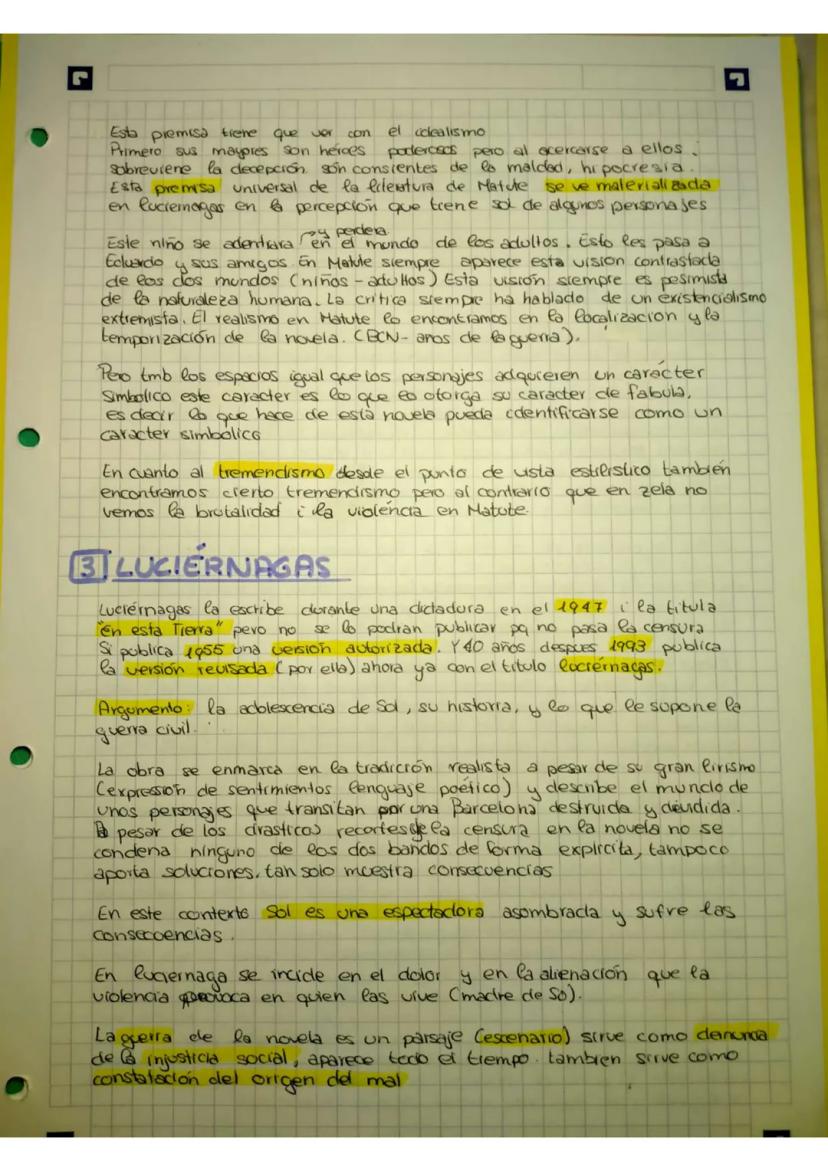 Esta premisa tiene que ver con el idealismo
Primero sus mayores son héroes poderosos pero al acercarse a ellos.
sobreviene la decepción. són consientes de la maldad, hipocresia.
Esta premisa universal de la literatura de Matute se ve materializada
en luciernagas en la percepción que tiene sol de algunos personajes
y perdera
Este niño se adentrara en el mundo de los adultos. Esto les pasa a
Eduardo y sus amigos En Matute siempre aparece esta vision contrastada
de los dos mundos (niños - adultos) Esta visión siempre es pesimista
de la naturaleza humana. La crítica siempre ha hablado de un existencialismo
extremista. El realismo en Matute lo encontramos en la localización y la
temporización de la novela. (BCN- anos de la guerra).
Pero tmb los espacios igual que los personajes adquieren un carácter
simbolico este caracter es lo que lo otorga su caracter de fabula,
es decir lo que hace de esta novela pueda identificarse como un
caracter simbolico
En cuanto al tremendismo desde el punto de vista estilistico también
encontramos cierto tremendismo pero al contrario que en zela no
vemos la brutalidad i la violéncia en Matute.
3 LUCIÉRNAGAS
Luciérnagas la escribe durante una dictadura en el 1947 i la titula
"en esta Tierra" pero no se lo podran publicar pq no pasa la censura
Si publica 1955 una version autorizada. Y 40 años despues 1993 publica
la versión revisada (por ella) ahora ya con el titulo luciérnagas.
Argumento: la adolescencia de Sol, su historia, y lo que le supone la
guerra civil.
La obra se enmarca en la tradicción realista a pesar de su gran lirismo
(expresión de sentimientos lenguaje poético) y describe el mundo de
unos personajes que transitan por una Barcelona destruida y dividida.
A pesar de los drasticos recortes de la censura en la novela no se
condena ninguno de los dos bandos de forma explicita, tampoco
aporta soluciones, tan solo muestra consecuencias
En este contexto Sol es una espectadora asombrada y sufre las
consecuencias.
En luciernaga se incide en el dolor y en la alienación que la
violencia provoca en quien las vive (madre de So).
La guerra de la novela es un paisaje (escenario) sirve como denuncia
de la injusticia social, aparece todo el tiempo. tambien sirve como
constatación del origen del mal